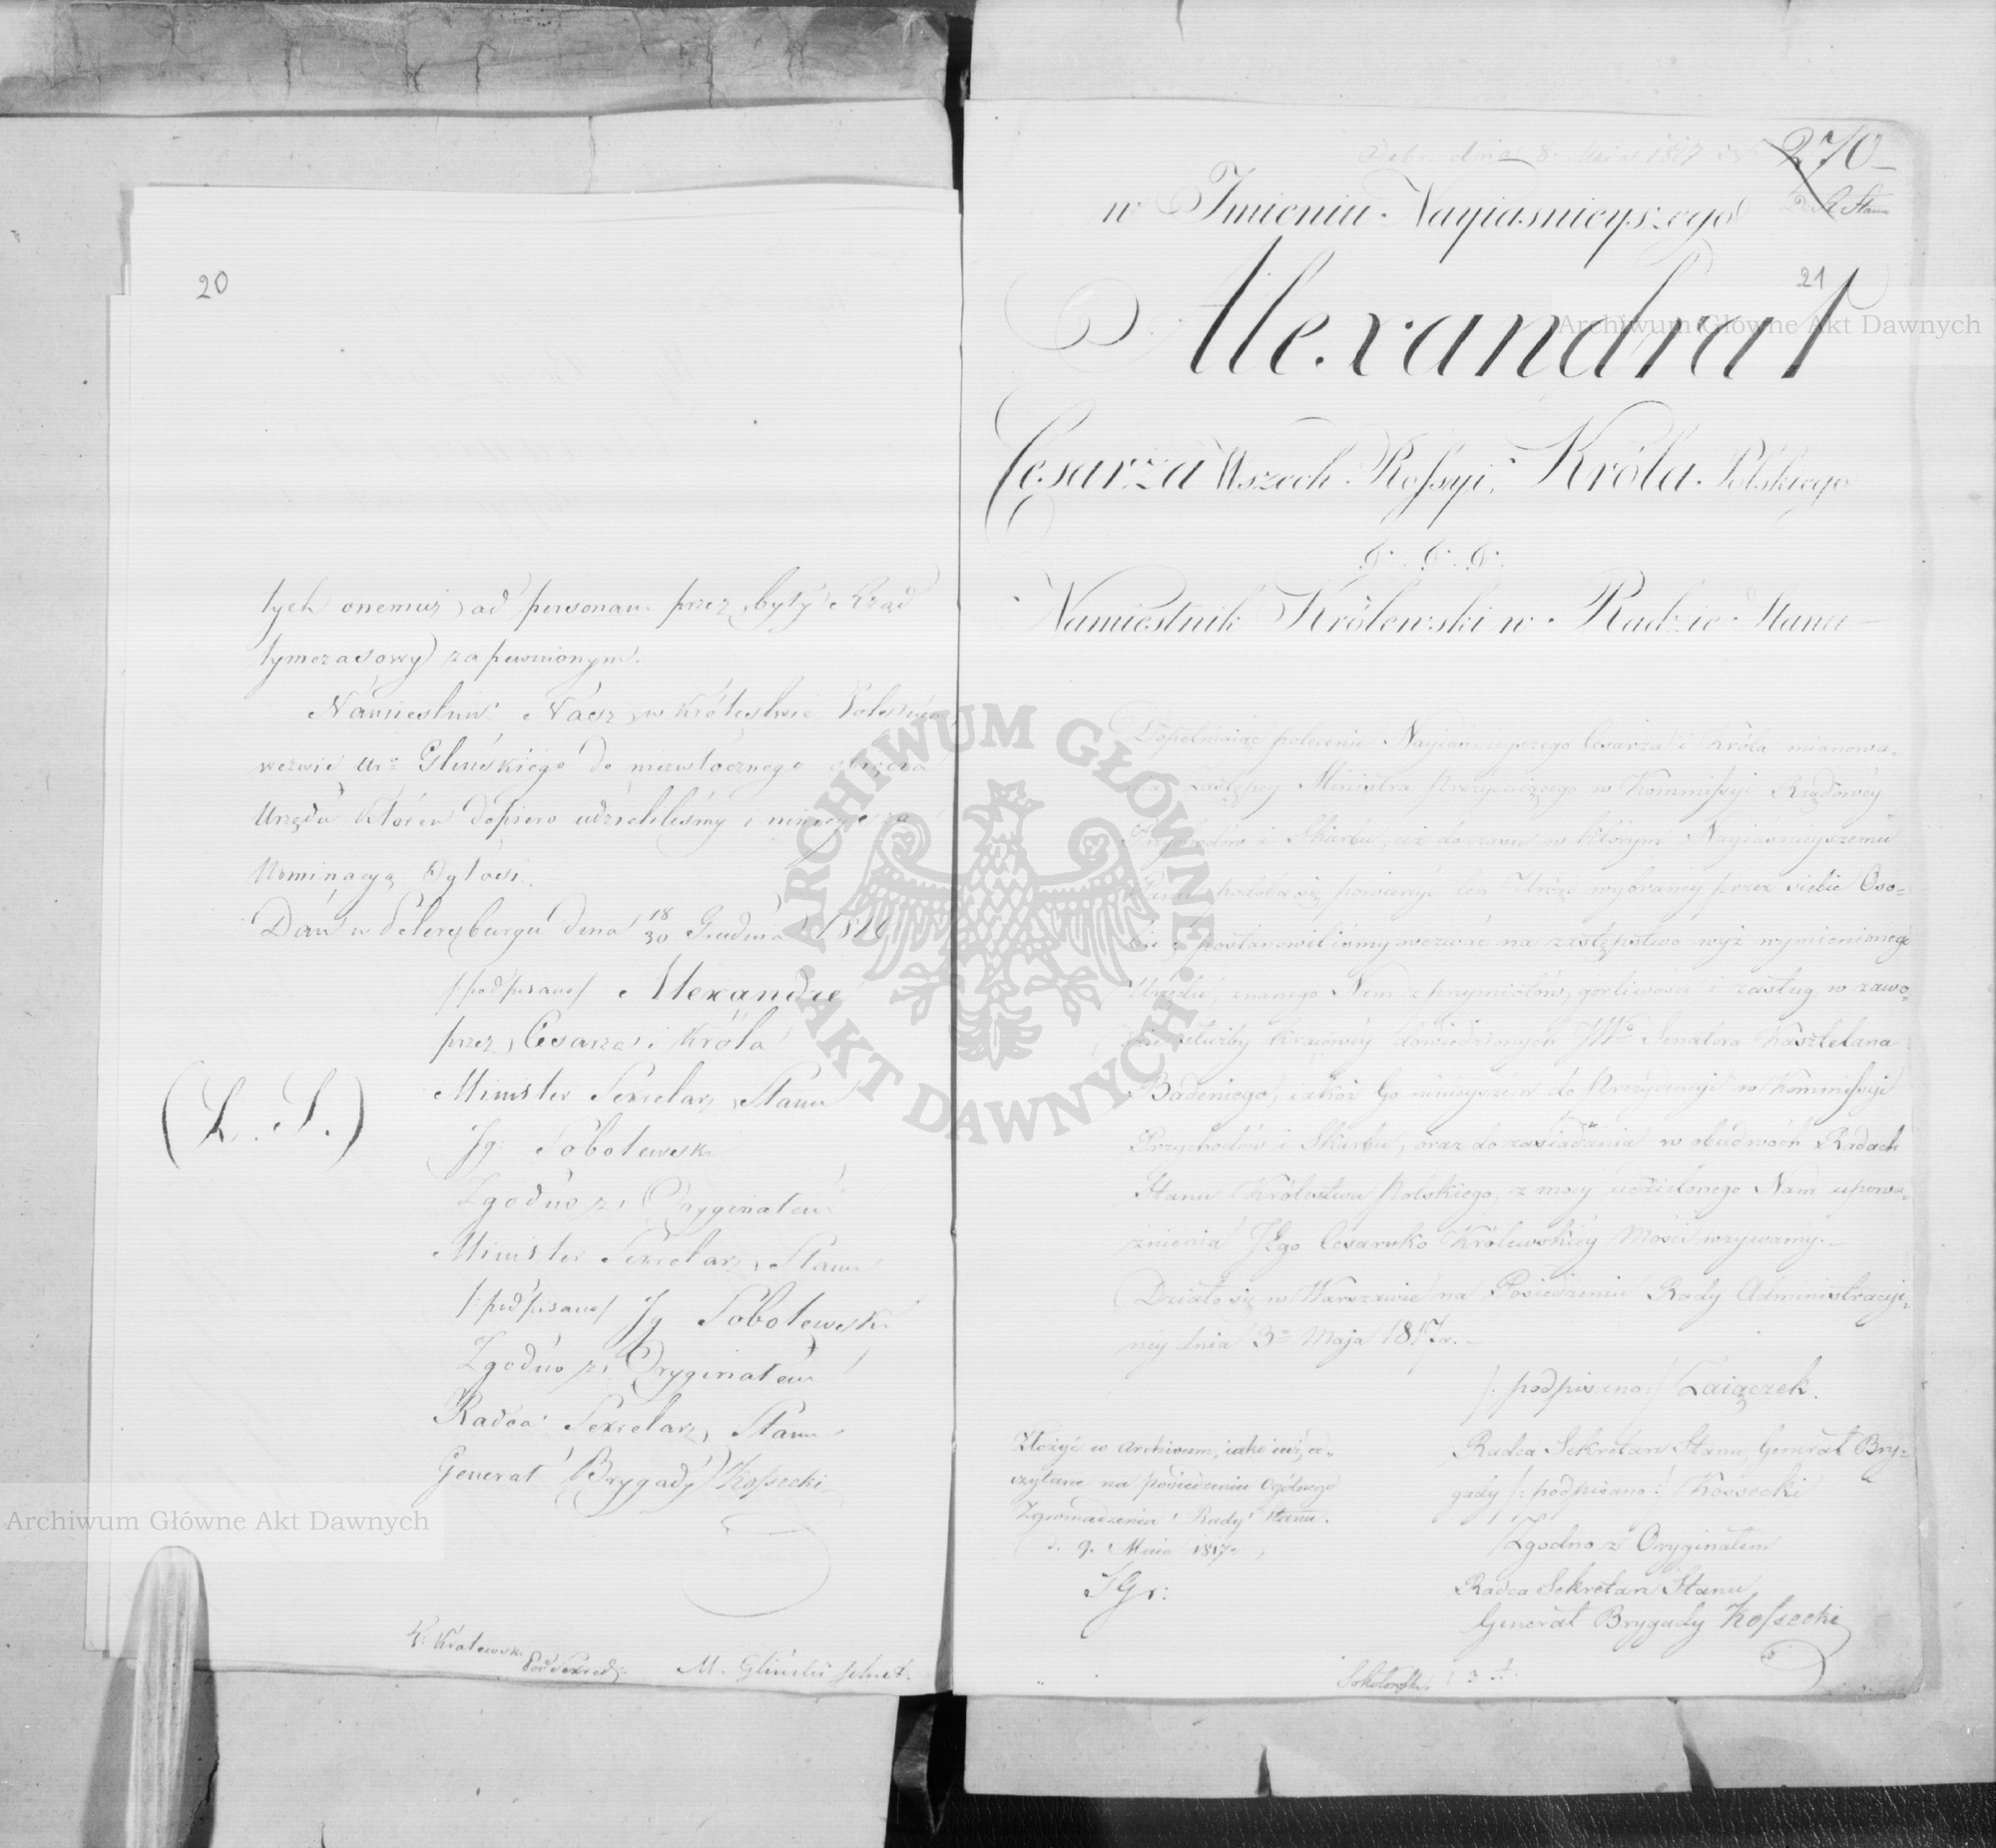 20
tych onemuż ad personam przez były Rząd
tymczasowy zapewnionym.
Namiestnik Nasz w Królestwie Polskim
wezwie Ur. Glińskiego do niezwłocznego objęcia
Urzędu któren dopiero udzieliliśmy i ninieysza
Nominacyą Ogłosi.
Dan w Petersburgu dnia 18/30 Grudnia 1816
/podpisano/ Alexandre
przez Cesarza i Króla
Minister Sekretarz Stanu
(L. S.)
Ig. Sobolewski
Zgodno z Oryginałem
Minister Sekretarz Stanu
/:podpisano/ Ig Sobolewski
Zgodno z Oryginałem
Radca Sekretarz Stanu
Generał Brygady Kossecki
M. Gliński
270
Deb. dnia 8 Maia 1817
R Stanu
w Imieniu Nayiasnieyszego
21
Alexandra I
Cesarza Wszech Rossyi, Króla Polskiego
&. &. &.
Namiestnik Królewski w Radzie Stanu
Dopełniaiąc polecenie Nayiasnieyszego Cesarza i Króla mianowa-
nia Zastępcy Ministra Prezyduiącego w Kommissyi Rządowéy
Przychodów i Skarbu, aż do czasu w którym Nayiasnieyszemu
Panu podoba się powierzyć ten Urząd wybranéy przez siebie Oso-
bie; postanowiliśmy wezwać na zastępstwo wyż wymienionego
Urzędu, znanego Nam z przymiotów, gorliwości i zasług w zawo-
dzie służby kraiowéy dowiedzionych JWo Senatora Kasztelana
Badeniego, iakoż Go ninieyszém do Prezydencyi w Kommissyi
Przychodów i Skarbu, oraz do zasiadania w obudwóch Radach
Stanu Królestwa Polskiego, z mocy udzielonego Nam upowa-
żnienia JEgo Cesarsko Królewskiéy Mości wzywamy.
Działo się w Warszawie na Posiedzeniu Rady Administracyi-
ney dnia 3o Maja 1817 r.
/:podpisano:/ Zaiączek.
Radca Sekretarz Stanu, Generał Bry-
gady /:podpisano:/ Kossecki
Zgodno z Oryginałem
Radca Sekretarz Stanu
Generał Brygady Kossecki
Złożyć w Archiwum, iako iuż od-
czytane na posiedzeniu Ogólnego
Zgromadzenia Rady Stanu.
d. 9. Maia 1817
Archiwum Główne Akt Dawnych
ARCHIWUM GŁÓWNE AKT DAWNYCH
Archiwum Główne Akt Dawnych